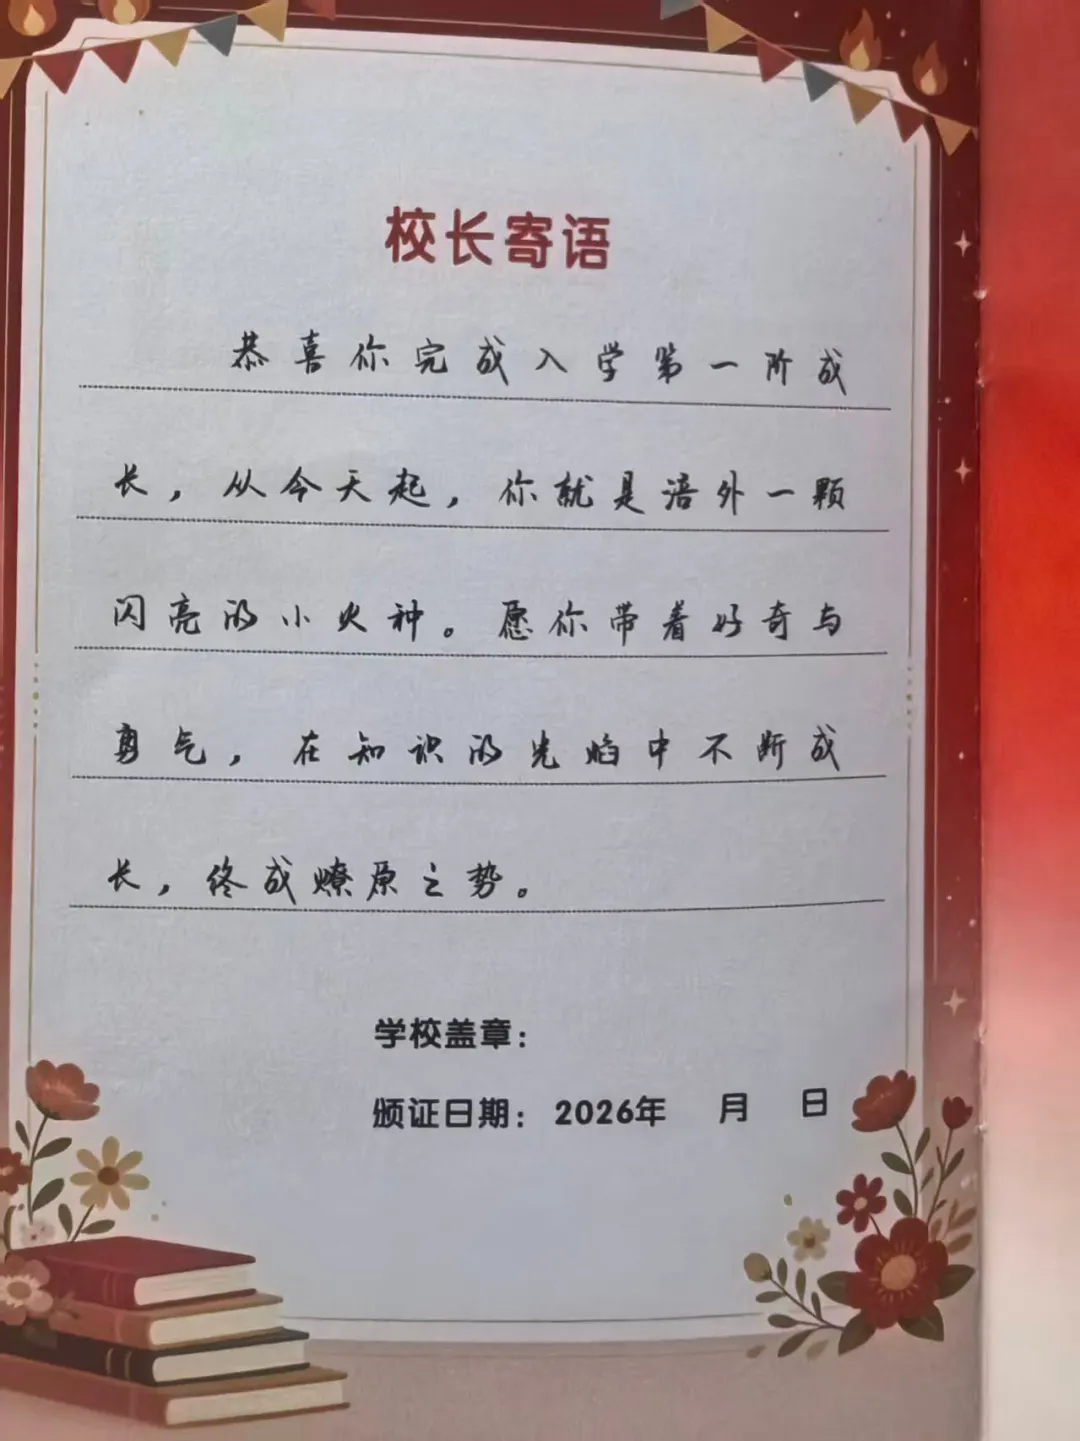 校长寄语
恭喜你完成入学第一阶成
长，从今天起，你就是涪外一颗
闪亮的小火种。愿你带着好奇与
勇气，在知识的光焰中不断成
长，终成燎原之势。
学校盖章：
颁证日期：2026年 月 日